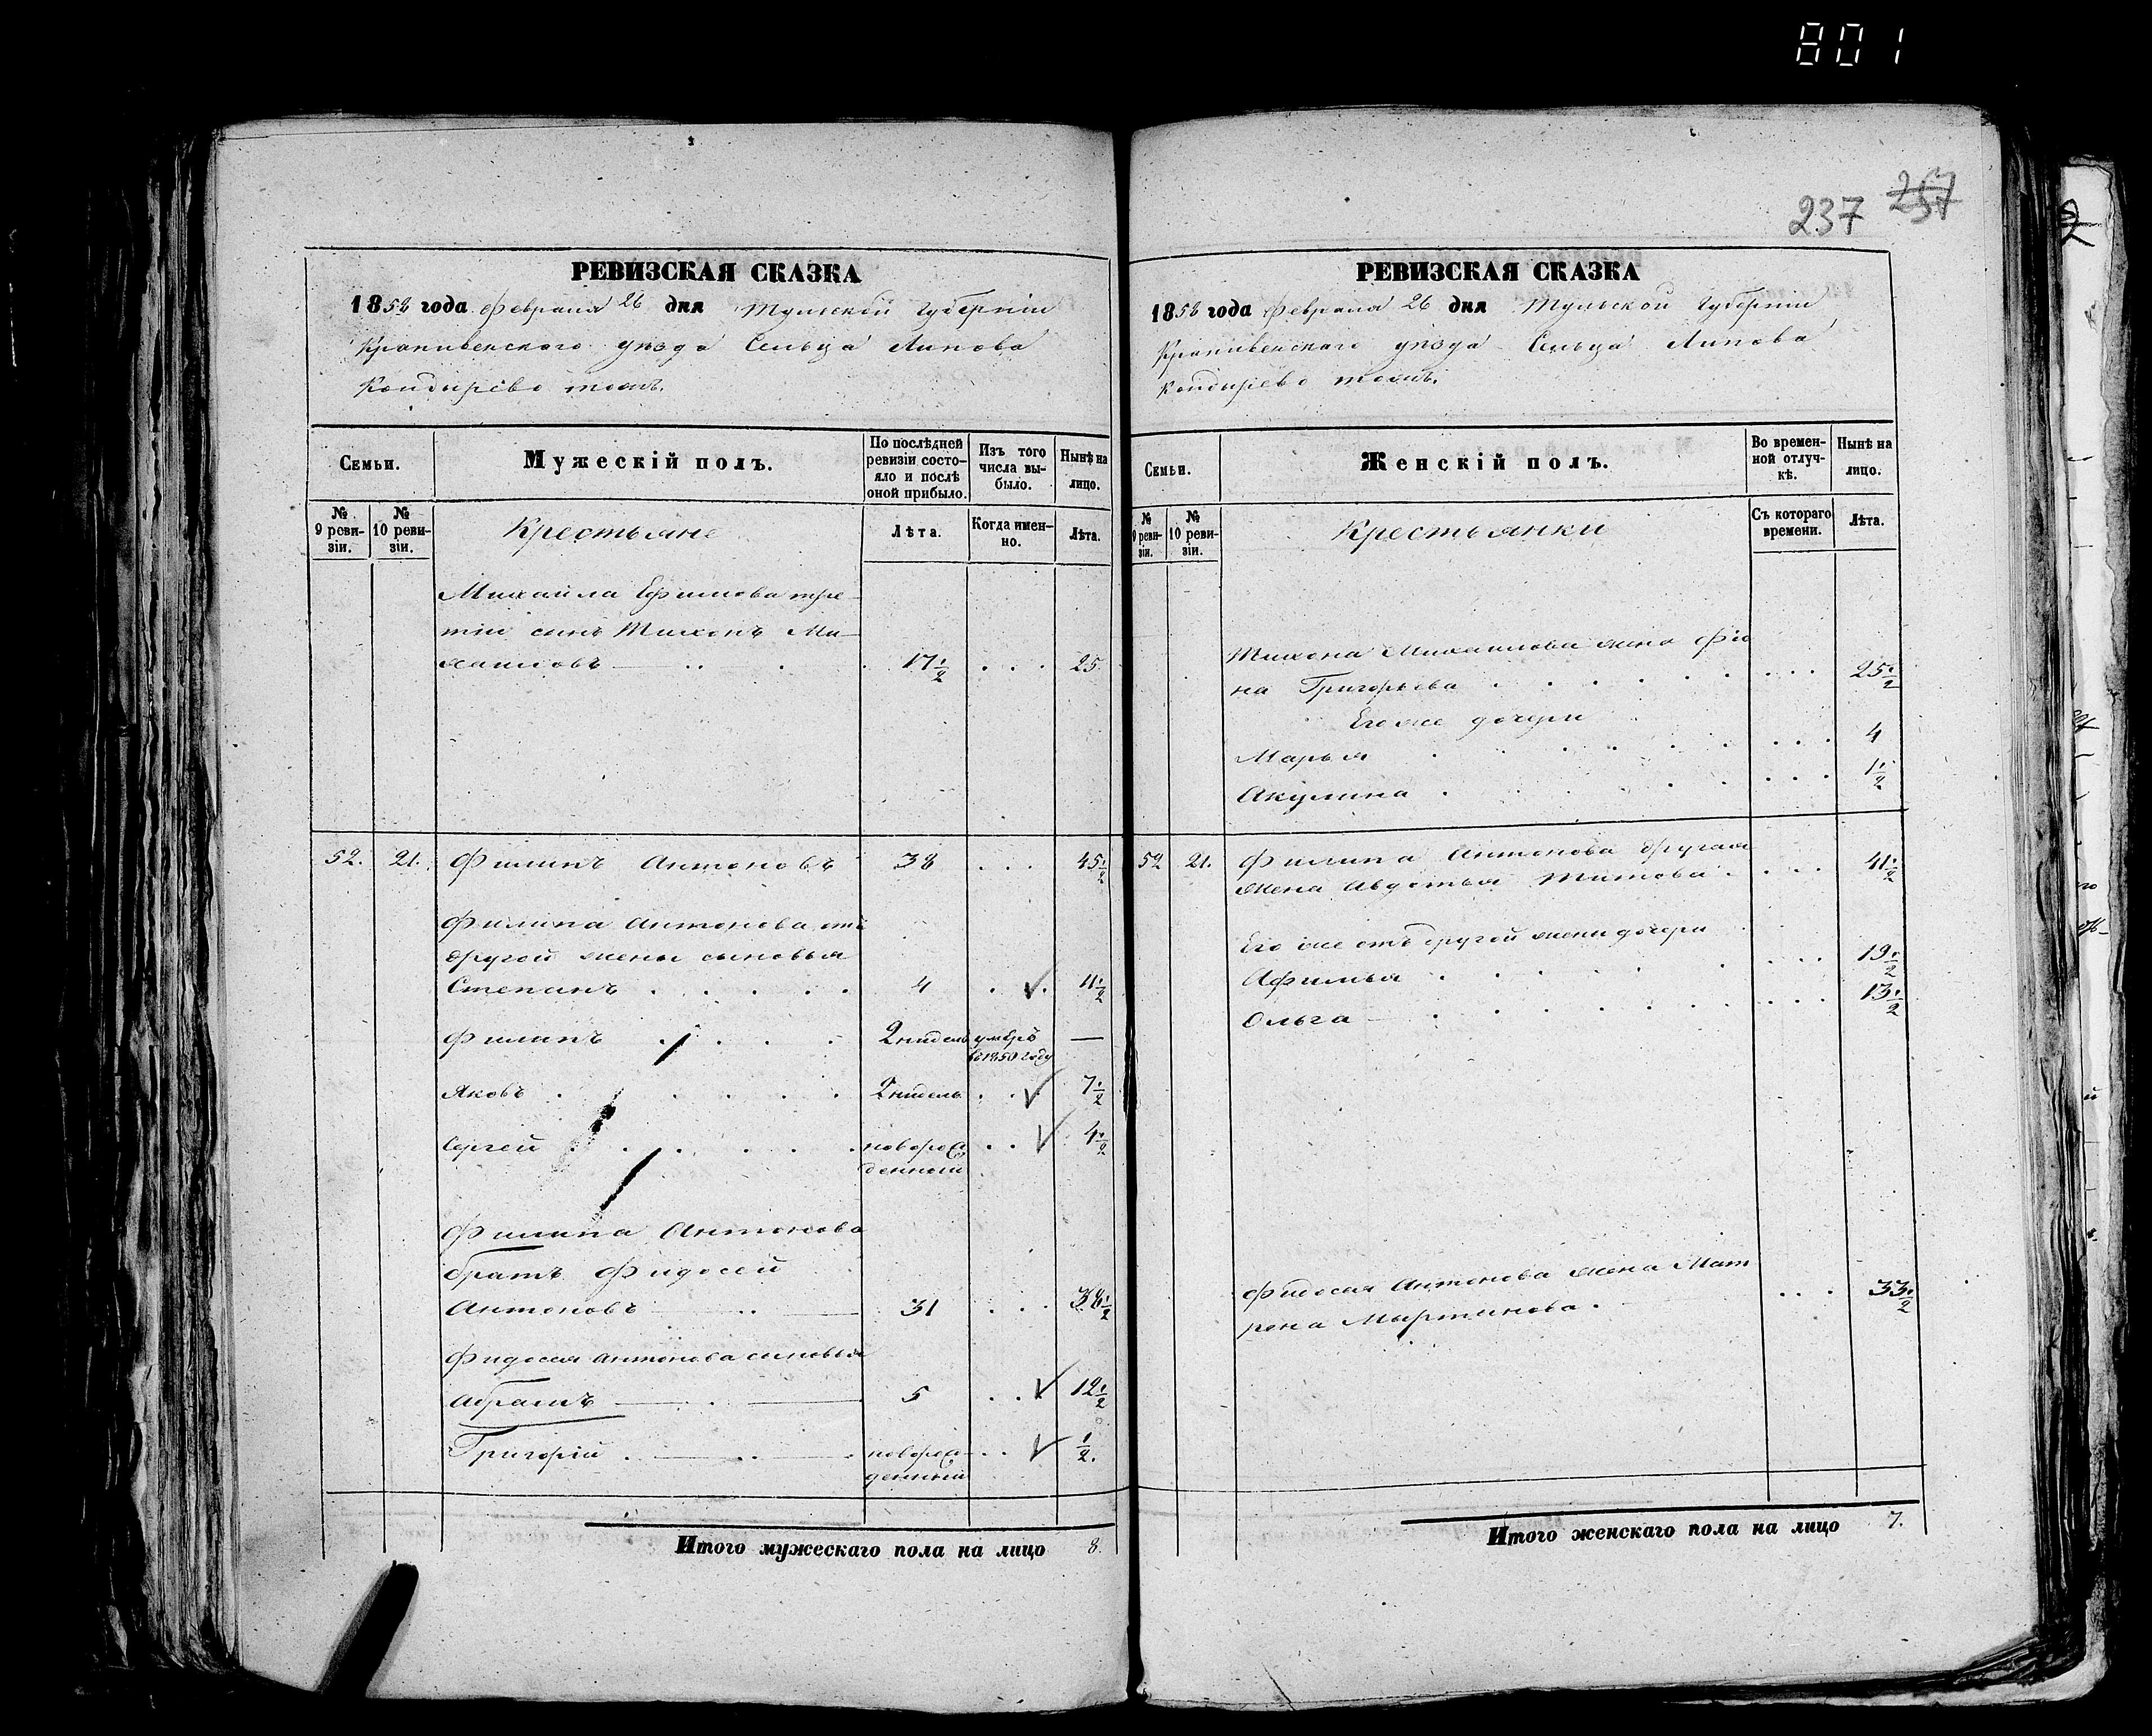 801
237 257
РЕВИЗСКАЯ СКАЗКА
1858 года Февраля 26 дня Тульской Губернiи
Крапивенскаго уѣзда Сельца Липова
Кондырево тожъ.
Семьи.
Мужескiй полъ.
По послѣдней
ревизiи состо-
яло и послѣ
оной прибыло.
Изъ того
числа вы-
было.
Нынѣ на
лицо.
№
9 реви-
зiи.
№
10 реви-
зiи.
Крестьяне
Лѣта.
Когда имен-
но.
Лѣта.
Михайла Ефимова тре-
тiй сынъ Тихонъ Ми-
хайловъ 17 1/2 . . . 25
52. 21. Филипъ Антоновъ 38 . . . 45 1/2
Филипа Антонова отъ
другой жены сыновья
Степанъ . . . . . 4 . . 11 1/2
Филипъ . . . . 2 нидель умеръ —
въ 1850 году
Яковъ . . . . . 2 нидель . . 7 1/2
Сергей . . . . . новорож . . 4 1/2
денный
Филипа Антонова
братъ Фидосей
Антоновъ 31 . . . 38 1/2
Фидосея Антонова сыновья
Абрамъ 5 . . 12 1/2
Григорiй новорож- . . 1/2.
денный
Итого мужескаго пола на лицо 8.
РЕВИЗСКАЯ СКАЗКА
1858 года Февраля 26 дня Тульской Губернiи
Крапивенскаго уѣзда Сельца Липова
Кондырево тожъ.
Семьи.
Женскiй полъ.
Во времен-
ной отлуч-
кѣ.
Нынѣ на
лицо.
№
9 реви-
зiи.
№
10 реви-
зiи.
Крестьянки
Съ котораго
времени.
Лѣта.
Тихона Михайлова жена Фiо
на Григорьева . . . . . . . . . 25 1/2
Его же дочери
Марья . . . . . . . . . 4
Акулина . . . . . . . . 1 1/2
52 21. Филипа Антонова другая
жена Авдотья Титова . . . . 41 1/2
Его же отъ другой жены дочери
Афимья . . . . . . . . . 19 1/2
Ольга . . . . . . . . . 13 1/2
Фидосея Антонова жена Мат
рена Мартинова . . . . 33 1/2
Итого женскаго пола на лицо 7.